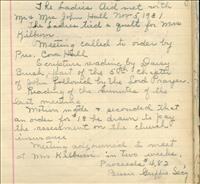 The Ladies Aid met with
Mr & Mrs John Hall Nov 5, 1931
The Ladies tied a quilt for Mrs
Kilburn.
Meeting called to order by
Pres. Cora Hall.
Scripture reading by Daisy
Bush, Part of the 5th chapter
of John followed by the Lord's Prayer.
Reading of the minutes of the
last meeting
Motion made & seconded that
an order for $18 be drawn to pay
the assessment on the church
insurance
Meeting adjourned to meet
at Mrs Kilburn in two weeks.
Proceeds 4.83
Susie Griffis Sec'y